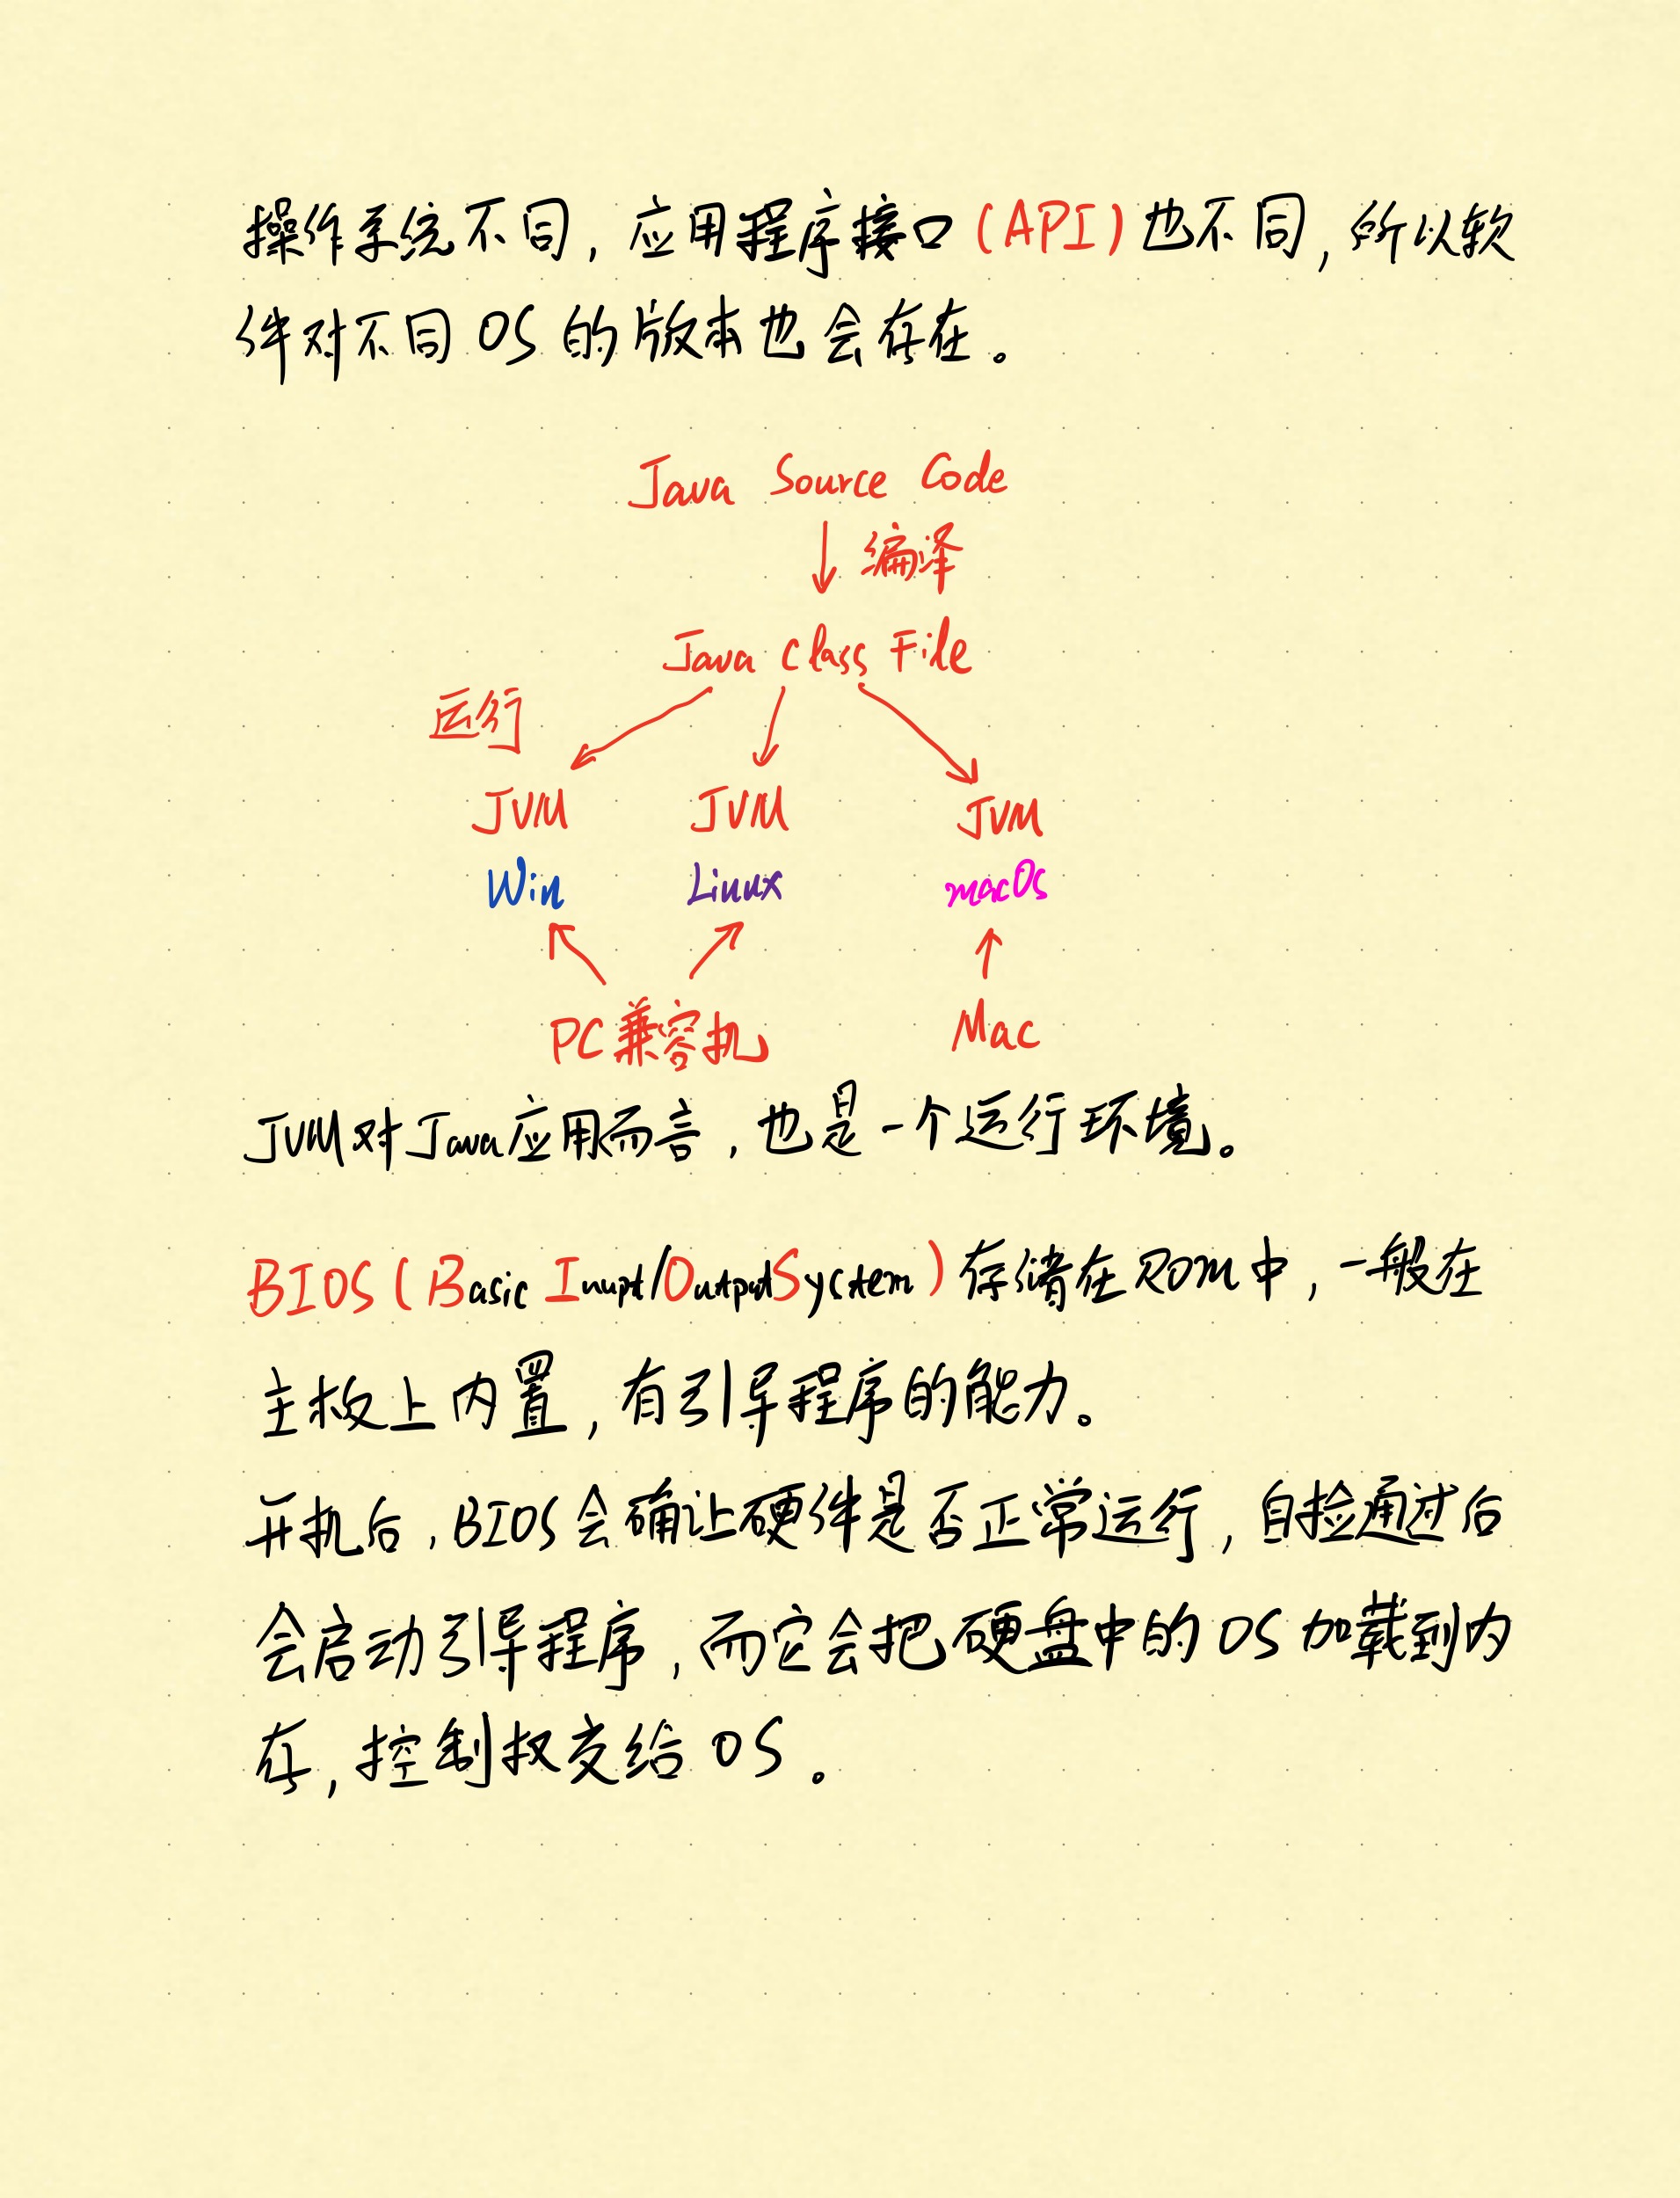 操作系统不同，应用程序接口（API）也不同，所以软
件对不同OS的版本也会存在。
Java Source Code
编译
Java Class File
运行
JVM JVM JVM
Win Linux macOS
PC兼容机 Mac
JVM对Java应用而言，也是一个运行环境。
BIOS（Basic Inupt/Outpud System）存储在ROM中，一般在
主板上内置，有引导程序的能力。
开机后，BIOS会确让硬件是否正常运行，自捡通过后
会启动引导程序，而它会把硬盘中的OS加载到内
存，控制权交给OS。